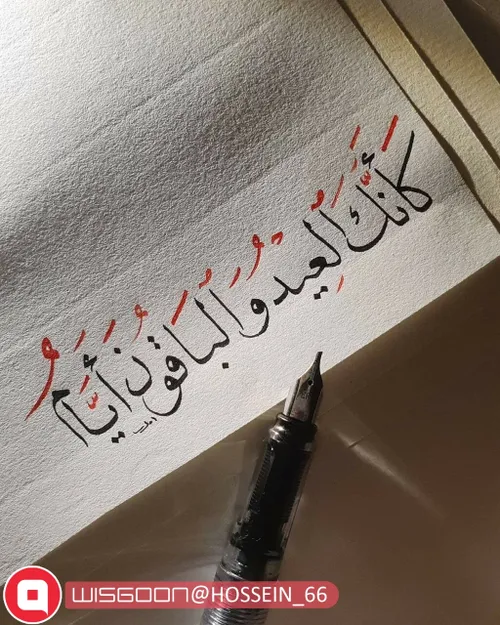 كَأَنَّكَ الْعِيدُ وَالْبَاقُونَ أَيَّامُ
WISGOON@HOSSEIN_66